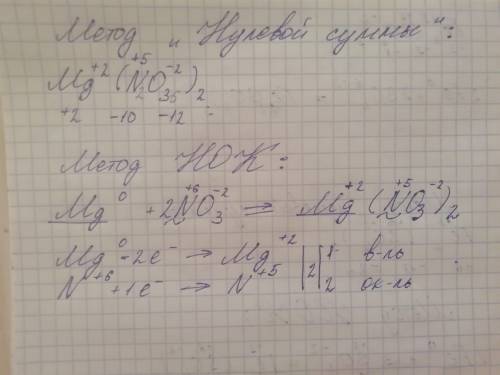 Метод „Нулевой суммы":
Mg⁺² (N⁺⁵₂O⁻²₃₆)₂
+2 -10 -12
Метод НОК:
Mg⁰ + 2N⁺⁶O₃⁻² = Mg⁺²(N⁺⁵O₃⁻²)₂
Mg⁰ - 2e⁻ → Mg⁺² |2| 1 в-ль
N⁺⁶ + 1e⁻ → N⁺⁵ 2 ок-ль